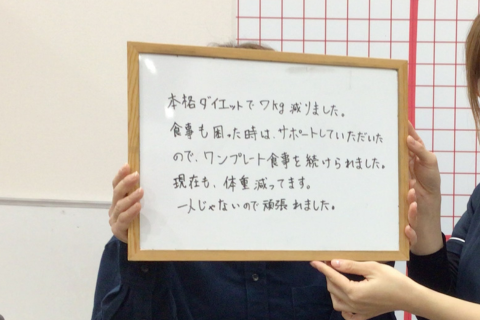 本格ダイエットで7kg減りました。
食事も困った時は、サポートしていただいた
ので、ワンプレート食事を続けられました。
現在も、体重減ってます。
一人じゃないので頑張れました。